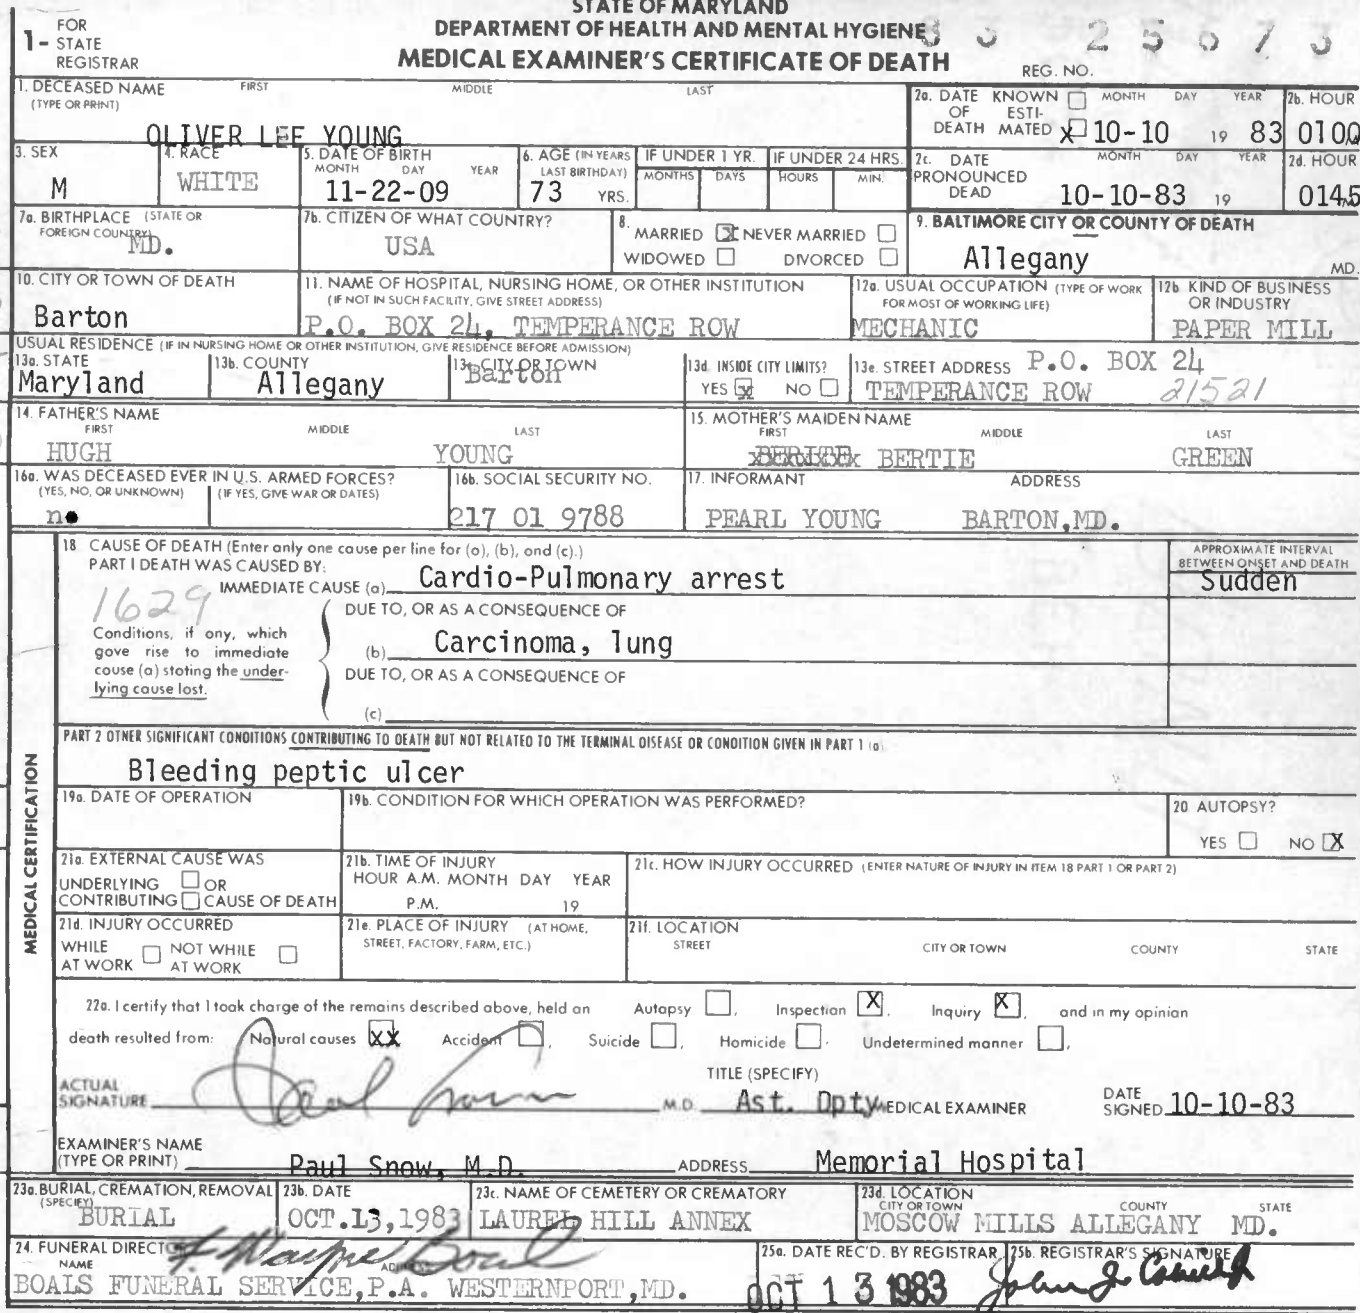 STATE OF MARYLAND
DEPARTMENT OF HEALTH AND MENTAL HYGIENE
MEDICAL EXAMINER'S CERTIFICATE OF DEATH
1- FOR STATE REGISTRAR
83 25673
REG. NO.
1. DECEASED NAME (TYPE OR PRINT) FIRST MIDDLE LAST
OLIVER LEE YOUNG
2a. DATE OF DEATH KNOWN ☐ ESTIMATED x☐ MONTH DAY YEAR
10-10 19 83
2b. HOUR
0100
3. SEX
M
4. RACE
WHITE
5. DATE OF BIRTH MONTH DAY YEAR
11-22-09
6. AGE (IN YEARS LAST BIRTHDAY)
73 YRS.
IF UNDER 1 YR. MONTHS DAYS
IF UNDER 24 HRS. HOURS MIN.
2c. DATE PRONOUNCED DEAD MONTH DAY YEAR
10-10-83 19
2d. HOUR
0145
7a. BIRTHPLACE (STATE OR FOREIGN COUNTRY)
MD.
7b. CITIZEN OF WHAT COUNTRY?
USA
8. MARRIED ☒ NEVER MARRIED ☐
WIDOWED ☐ DIVORCED ☐
9. BALTIMORE CITY OR COUNTY OF DEATH
Allegany MD.
10. CITY OR TOWN OF DEATH
Barton
11. NAME OF HOSPITAL, NURSING HOME, OR OTHER INSTITUTION
(IF NOT IN SUCH FACILITY, GIVE STREET ADDRESS)
P.O. BOX 24, TEMPERANCE ROW
12a. USUAL OCCUPATION (TYPE OF WORK FOR MOST OF WORKING LIFE)
MECHANIC
12b KIND OF BUSINESS OR INDUSTRY
PAPER MILL
USUAL RESIDENCE (IF IN NURSING HOME OR OTHER INSTITUTION, GIVE RESIDENCE BEFORE ADMISSION)
13a. STATE
Maryland
13b. COUNTY
Allegany
13c. CITY OR TOWN
Barton
13d. INSIDE CITY LIMITS?
YES ☒ NO ☐
13e. STREET ADDRESS P.O. BOX 24
TEMPERANCE ROW 21521
14. FATHER'S NAME
FIRST MIDDLE LAST
HUGH YOUNG
15. MOTHER'S MAIDEN NAME
FIRST MIDDLE LAST
BERTIE GREEN
16a. WAS DECEASED EVER IN U.S. ARMED FORCES?
(YES, NO, OR UNKNOWN) (IF YES, GIVE WAR OR DATES)
no
16b. SOCIAL SECURITY NO.
217 01 9788
17. INFORMANT ADDRESS
PEARL YOUNG BARTON,MD.
MEDICAL CERTIFICATION
18 CAUSE OF DEATH (Enter only one cause per line for (a), (b), and (c).)
PART I DEATH WAS CAUSED BY:
IMMEDIATE CAUSE (a) Cardio-Pulmonary arrest
APPROXIMATE INTERVAL BETWEEN ONSET AND DEATH
Sudden
1629
Conditions, if any, which gave rise to immediate cause (a) stating the underlying cause last.
DUE TO, OR AS A CONSEQUENCE OF
(b) Carcinoma, lung
DUE TO, OR AS A CONSEQUENCE OF
(c)
PART 2 OTHER SIGNIFICANT CONDITIONS CONTRIBUTING TO DEATH BUT NOT RELATED TO THE TERMINAL DISEASE OR CONDITION GIVEN IN PART 1 (a)
Bleeding peptic ulcer
19a. DATE OF OPERATION
19b. CONDITION FOR WHICH OPERATION WAS PERFORMED?
20 AUTOPSY?
YES ☐ NO ☒
21a. EXTERNAL CAUSE WAS
UNDERLYING ☐ OR
CONTRIBUTING ☐ CAUSE OF DEATH
21b. TIME OF INJURY
HOUR A.M. MONTH DAY YEAR
P.M. 19
21c. HOW INJURY OCCURRED (ENTER NATURE OF INJURY IN ITEM 18 PART 1 OR PART 2)
21d. INJURY OCCURRED
WHILE AT WORK ☐ NOT WHILE AT WORK ☐
21e. PLACE OF INJURY (AT HOME, STREET, FACTORY, FARM, ETC.)
21f. LOCATION
STREET CITY OR TOWN COUNTY STATE
22a. I certify that I took charge of the remains described above, held an Autopsy ☐, Inspection ☒, Inquiry ☒, and in my opinion
death resulted from: Natural causes XX Accident ☐, Suicide ☐, Homicide ☐. Undetermined manner ☐,
ACTUAL SIGNATURE Paul Snow M.D.
TITLE (SPECIFY)
Ast. Dpty MEDICAL EXAMINER
DATE SIGNED 10-10-83
EXAMINER'S NAME (TYPE OR PRINT) Paul Snow, M.D. ADDRESS Memorial Hospital
23a. BURIAL, CREMATION, REMOVAL (SPECIFY)
BURIAL
23b. DATE
OCT.13,1983
23c. NAME OF CEMETERY OR CREMATORY
LAUREL HILL ANNEX
23d. LOCATION
CITY OR TOWN COUNTY STATE
MOSCOW MILLS ALLEGANY MD.
24. FUNERAL DIRECTOR
NAME ADDRESS
BOALS FUNERAL SERVICE,P.A. WESTERNPORT,MD.
25a. DATE REC'D. BY REGISTRAR
OCT 13 1983
25b. REGISTRAR'S SIGNATURE